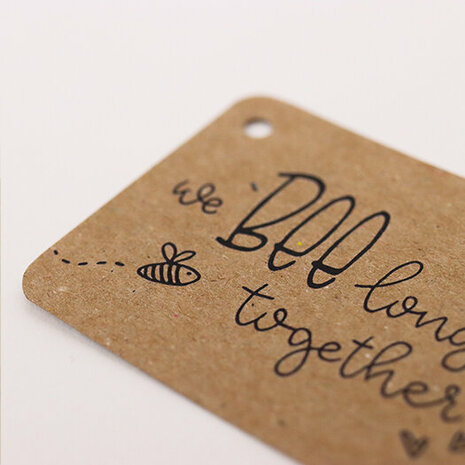 we 'BEE long
together